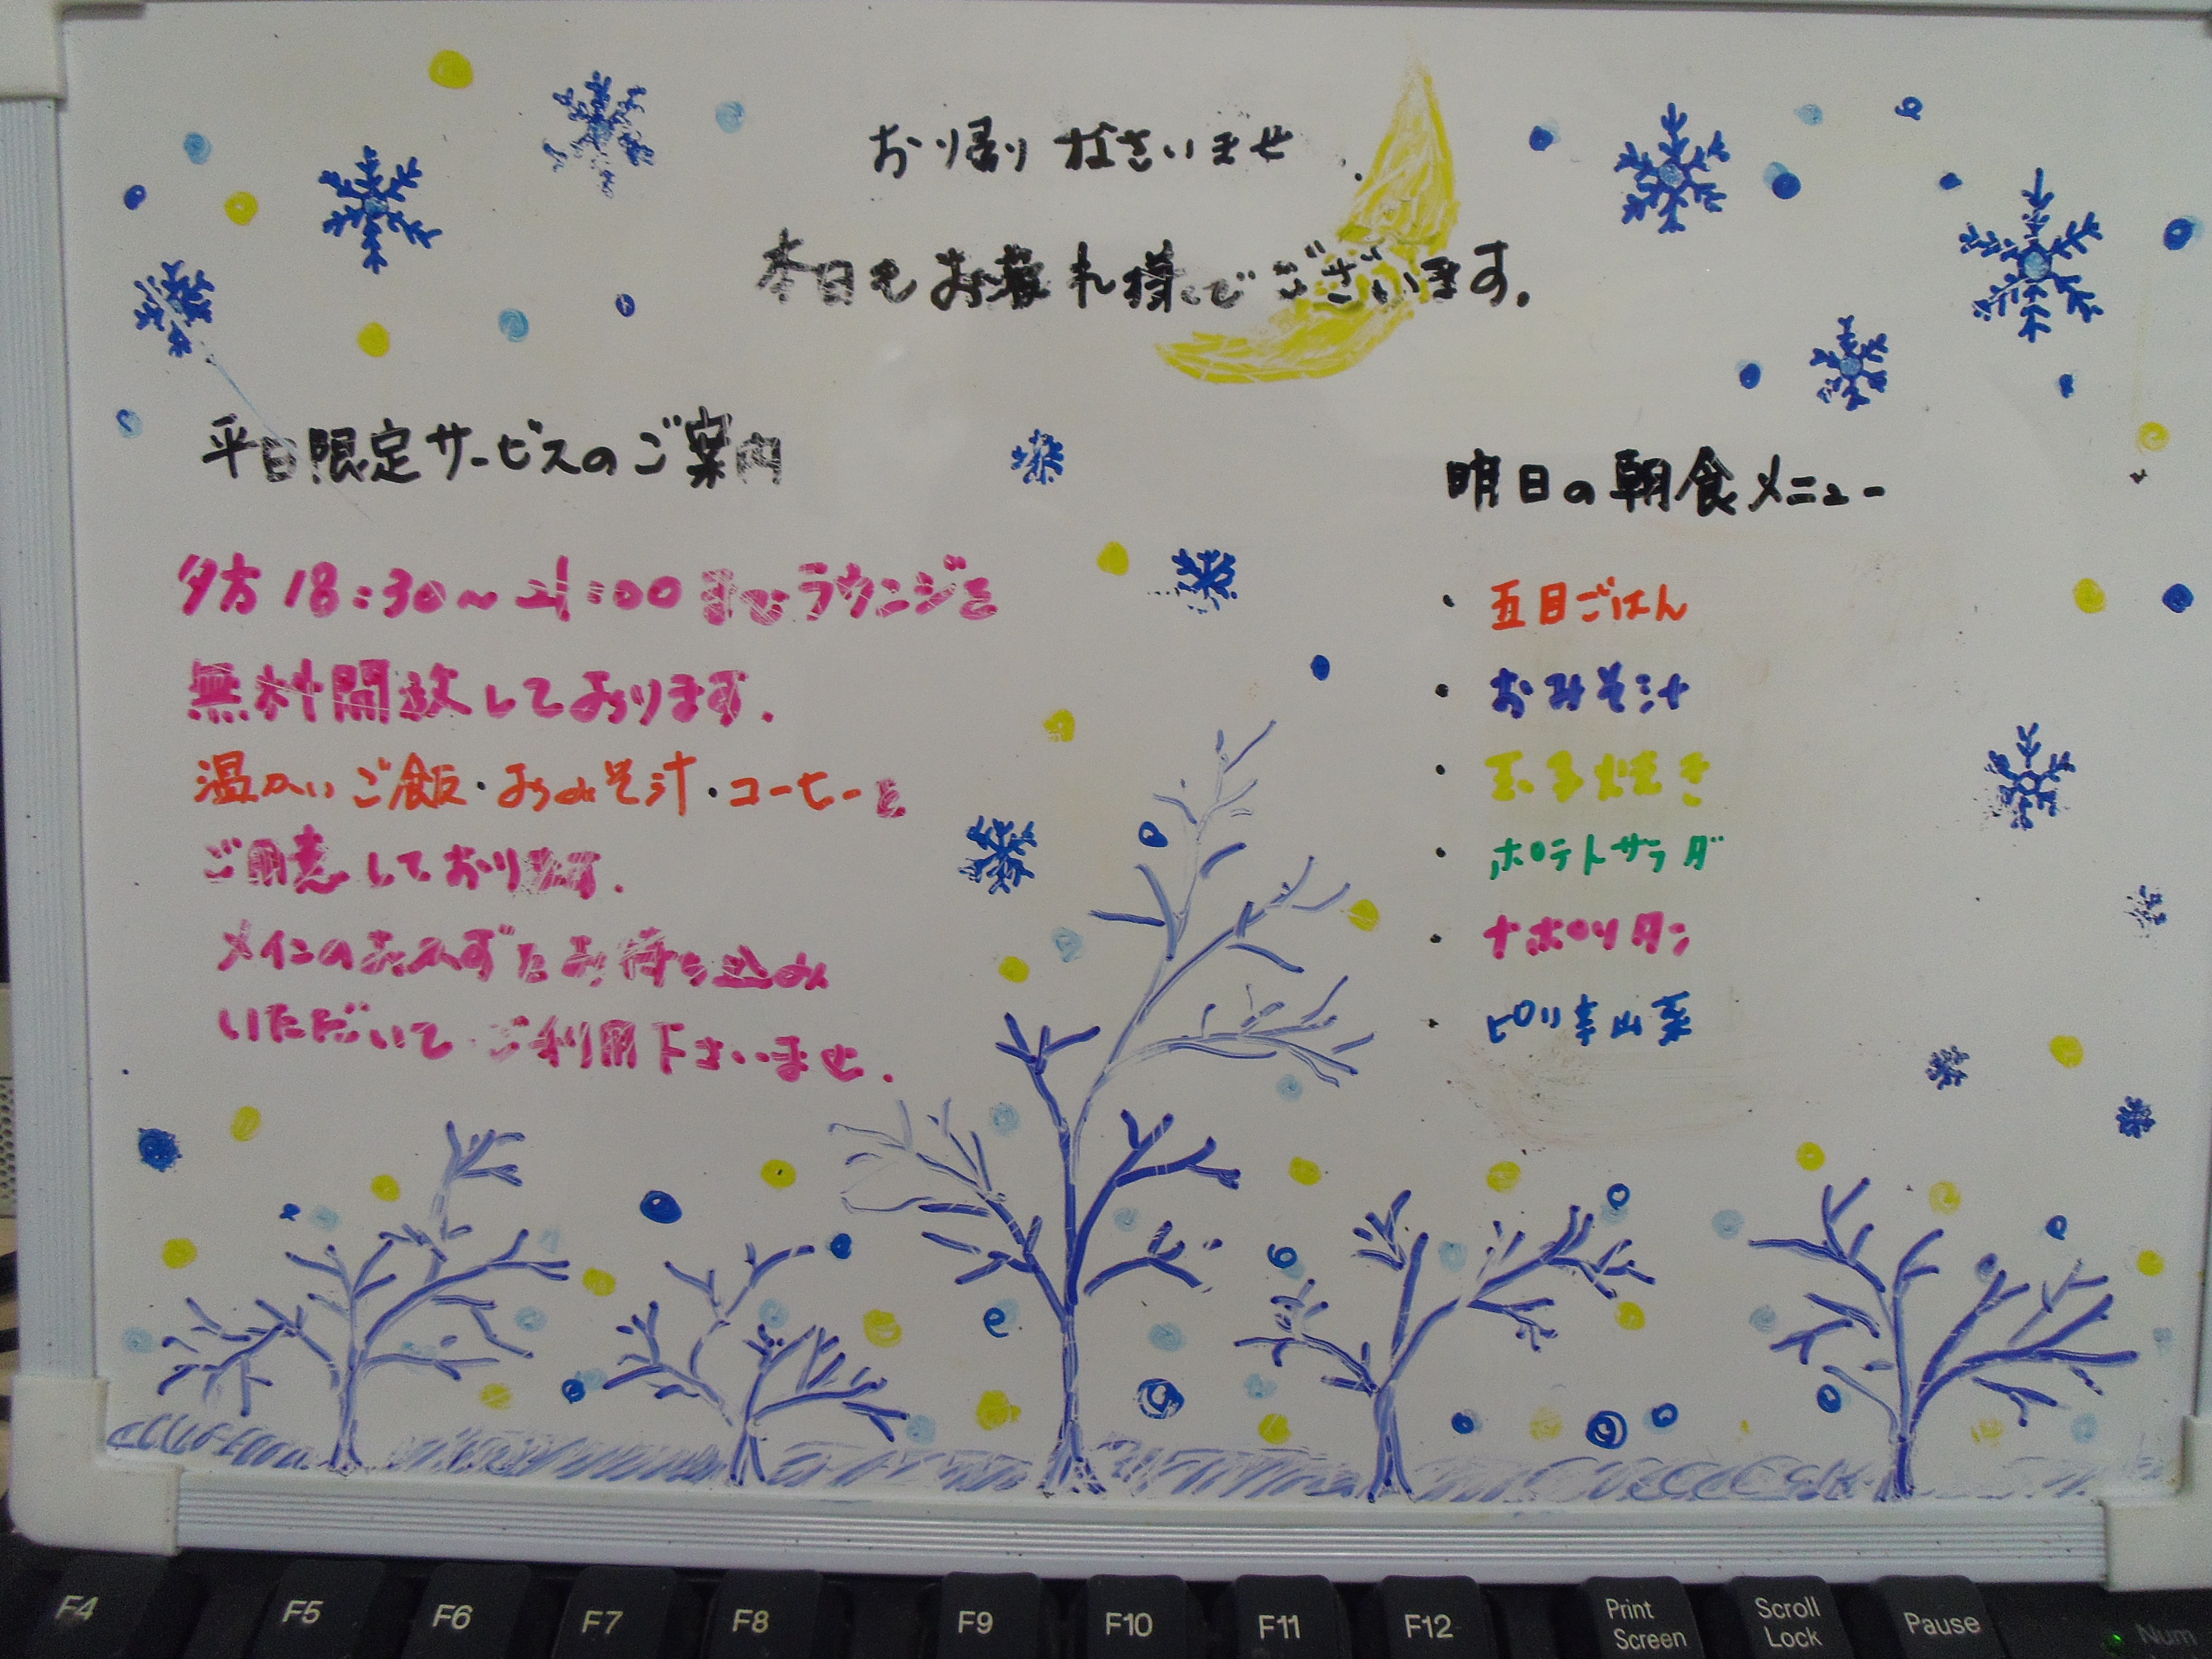 お帰りなさいませ.
本日もお疲れ様でございます。
平日限定サービスのご案内
夕方 18:30~21:00までラウンジを
無料開放しております.
温かいご飯・おみそ汁・コーヒーを
ご用意しております.
メインのおかずをお持ち込み
いただいて ご利用下さいませ.
明日の朝食メニュー
・五目ごはん
・おみそ汁
・玉子焼き
・ポテトサラダ
・ナポリタン
・ピリ辛山菜
F4 F5 F6 F7 F8 F9 F10 F11 F12 Print Screen Scroll Lock Pause Num